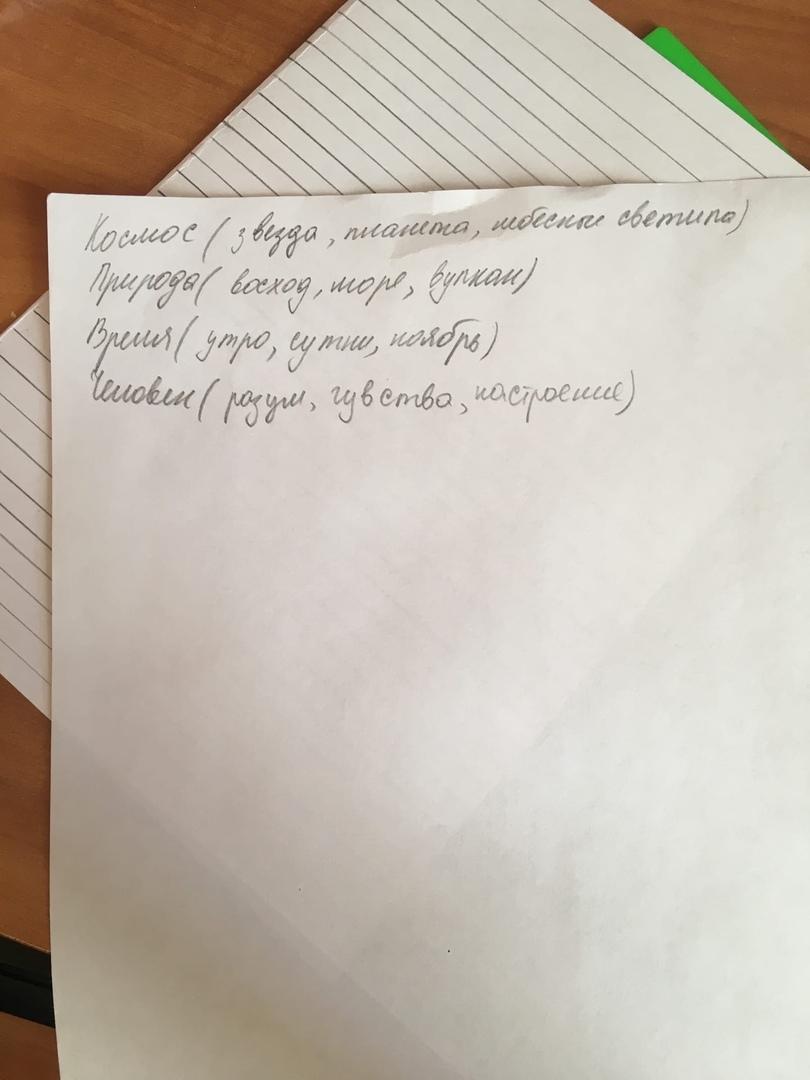 Космос ( звезда, планета, небесные светила)
Природа( восход, море, вулкан)
Время( утро, сутки, ноябрь)
Человек( разум, чувства, настроение)